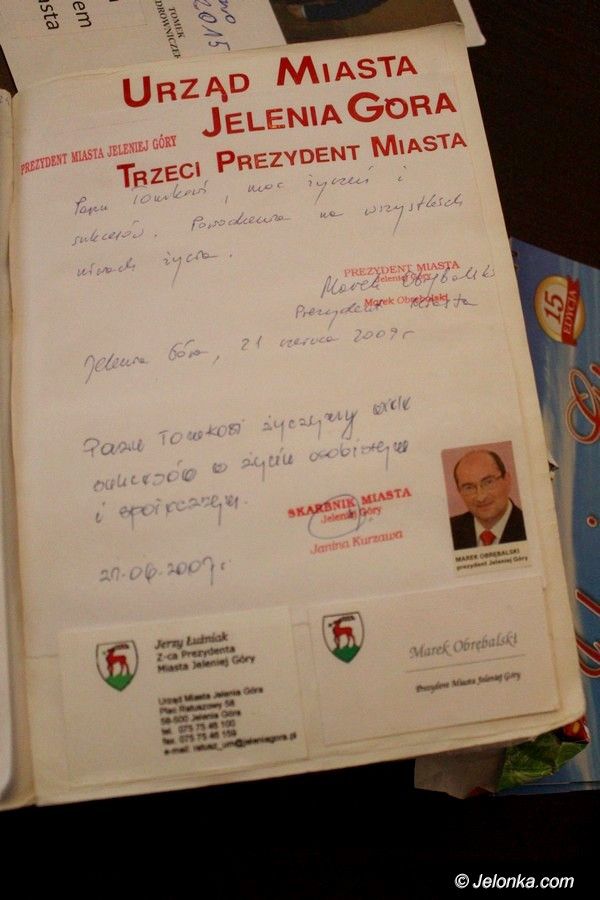 em
asta
TOMEK
DROWNICZEK
2015
URZĄD MIASTA
JELENIA GÓRA
PREZYDENT MIASTA JELENIEJ GÓRY
TRZECI PREZYDENT MIASTA
Panu Tomkowi, moc życzeń i
sukcesów. Powodzenia na wszystkich
niwach życia.
PREZYDENT MIASTA
Jeleniej Góry
Marek Obrębalski
Marek Obrębalski
Prezydent Miasta
Jelenia Góra, 21 czerwca 2009 r
Panu Tomkowi życzymy wiele
sukcesów w życiu osobistym
i społecznym.
SKARBNIK MIASTA
Jeleniej Góry
Janina Kurzawa
MAREK OBRĘBALSKI
prezydent Jeleniej Góry
Jerzy Łużniak
Z-ca Prezydenta
Miasta Jeleniej Góry
Urząd Miasta Jelenia Góra
Plac Ratuszowy 58
58-500 Jelenia Góra
tel. 075 75 46 100
fax. 075 75 46 159
e-mail: ratusz_um@jeleniagora.pl
Marek Obrębalski
Prezydent Miasta Jeleniej Góry
15
EDYCJA
© Jelonka.com